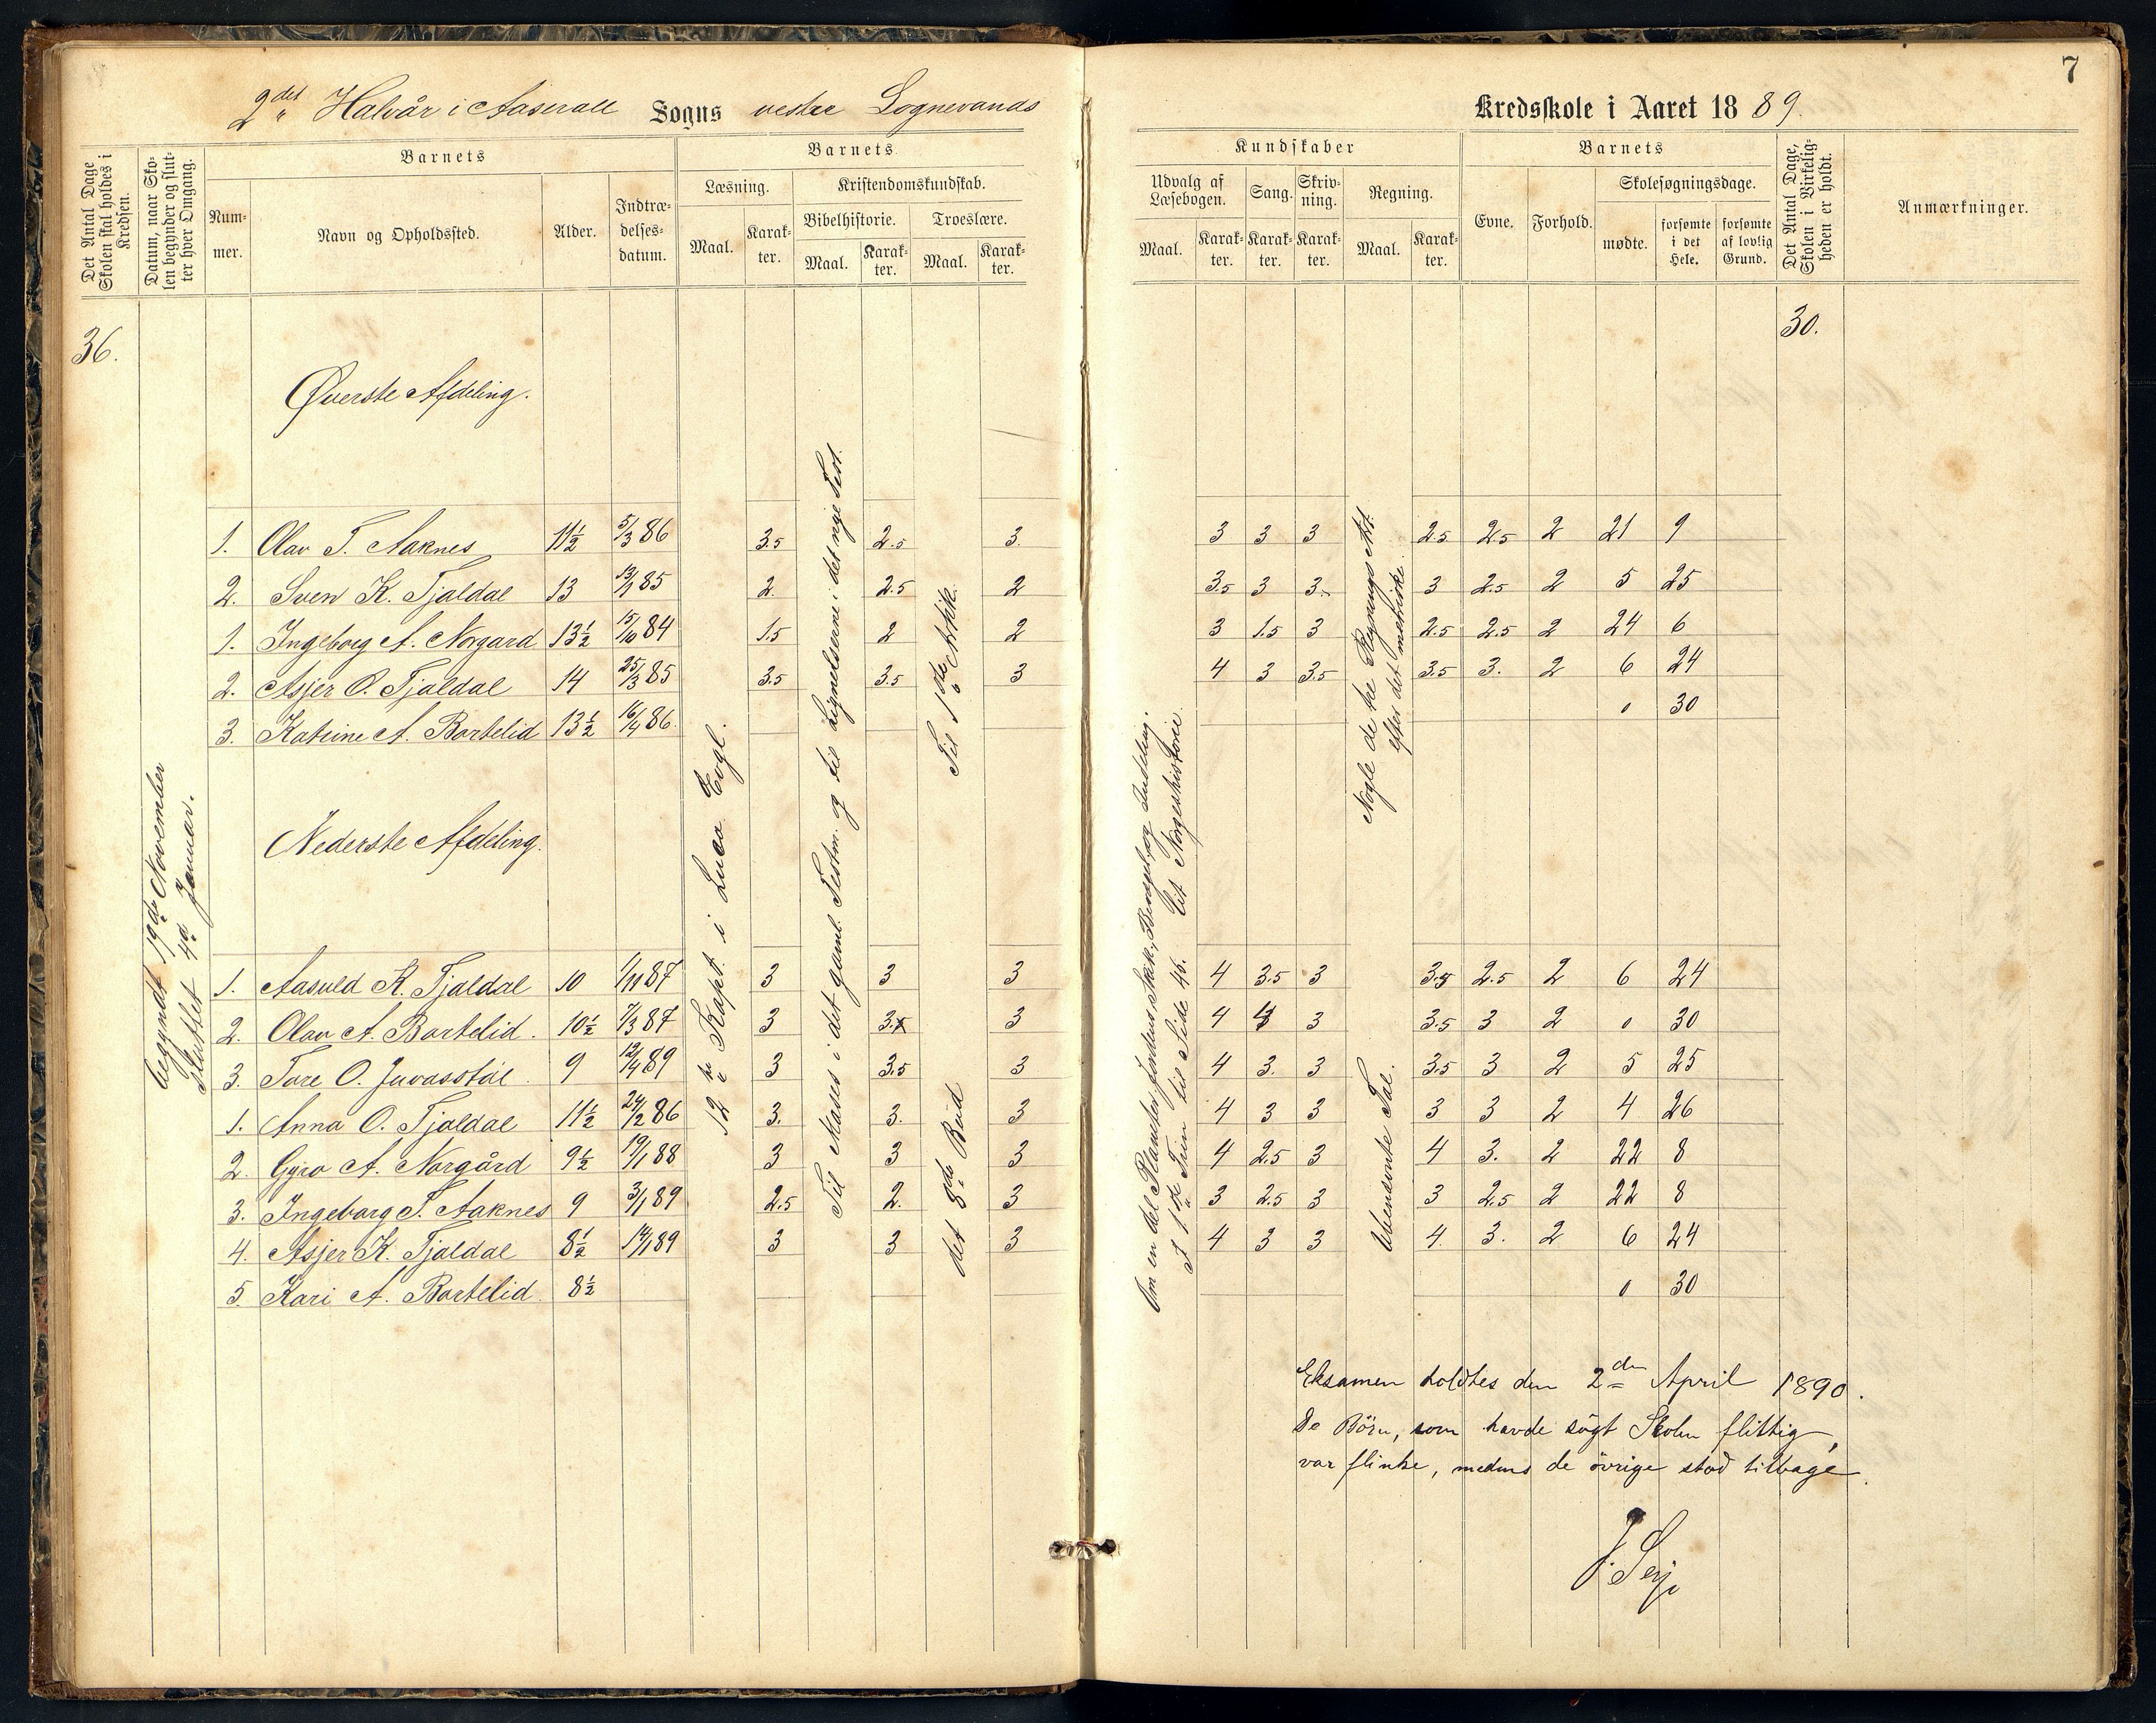 7
2det Halvår i Aaserall Sogns vestre Lognevands Kredsskole i Aaret 1889.
Det Antal Dage Skolen skal holdes i Kredsen.
Datum, naar Skolen begynder og slutter hver Omgang.
Barnets
Nummer.
Navn og Opholdssted.
Alder.
Indtrædelsesdatum.
Barnets
Læsning.
Maal.
Karakter.
Kristendomskundskab.
Bibelhistorie.
Maal.
Karakter.
Troeslære.
Maal.
Karakter.
Kundskaber
Udvalg af Læsebogen.
Maal.
Karakter.
Sang.
Karakter.
Skrivning.
Karakter.
Regning.
Maal.
Karakter.
Barnets
Evne.
Forhold.
Skolesøgningsdage.
mødte.
forsømte i det Hele.
forsømte af lovlig Grund.
Det Antal Dage, Skolen i Virkeligheden er holdt.
Anmærkninger.
36.
30.
begyndt 19de November
Sluttet 4d Januar.
12te Kapt. i Luca Evgl.
Til Moses i det gaml. Testm. og til Lignelserne i det nye Test.
Til 1ste Artkk.
det 8de Bud
Om en del Planeter, Jordens Skik., Bevægels, og Inddeling.
Af 1ste Trin til Side 46. Lit Norgeshistorie.
Nogle de tre Regnings Art.
efter det metriske.
Ubenevnte Tal.
Øverste Afdeling.
1. Olav T. Aaknes 11½ 5/3 86 3.5 2.5 3. 3 3 3 2.5 2.5 2 21 9
2. Sven K. Tjaldal 13 13/1 85 2. 2.5 2 3.5 3 3. 3 2.5 2 5 25
1. Ingeborg A. Norgard 13½ 15/10 84 1.5 2 2 3 1.5 3 2.5 2.5 2 24 6
2. Asjer O. Tjaldal 14 25/3 85 3.5 3.5 3 4 3 3.5 3.5 3. 2 6 24
3. Katrine A. Bortelid 13½ 16/4 86. 0 30
Nederste Afdeling.
1. Aasuld K. Tjaldal 10 1/11 87 3 3 3 4 3.5 3 3.5 2.5 2 6 24
2. Olav A. Bortelid. 10½ 7/3 87 3 3. 3 4 4 3 3.5 3 2 0 30
3. Tore O. Juvasstøl 9 12/4 89 3 3.5 3 4 3. 3 3.5 3 2 5 25
1. Anna O. Tjaldal 11½ 24/2 86 3. 3. 3 4 3 3 3 3 2 4 26
2. Gyro A. Norgård 9½ 19/1 88 3 3 3 4 2.5 3 4 3. 2 22 8
3. Ingeborg T. Aaknes 9 3/1 89 2.5 2. 3 3 2.5 3 3 2.5 2 22 8
4. Asjer K. Tjaldal 8½ 14/1 89 3 3 3 4 3 3 4. 3. 2 6 24
5. Kari A. Bortelid 8½ 0 30
Eksamen holdtes den 2den April 1890.
De Börn, som havde sögt Skolen flittig,
var flinke, medens de övrige stod tilbage.